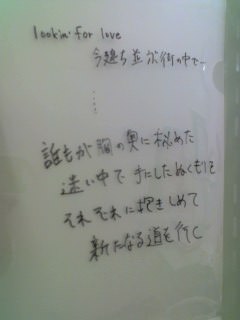 lookin' for love
今建ち並ぶ街の中で…
……
誰もが胸の奥に秘めた
迷い中で手にしたぬくもりを
それぞれに抱きしめて
新たなる道を行く